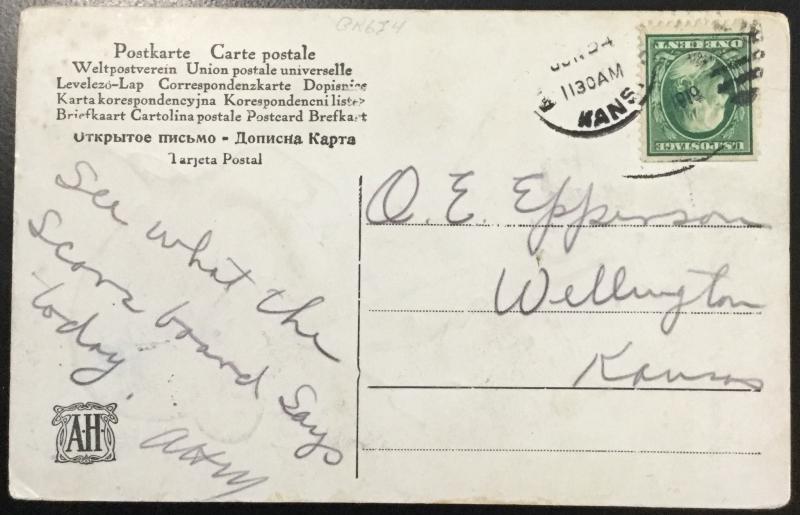 BK674
Postkarte Carte postale
Weltpostverein Union postale universelle
Levelező-Lap Correspondenzkarte Dopisnice
Karta korespondencyjna Korespondencni listek
Briefkaart Cartolina postale Postcard Brefkort
Открытое письмо - Дописна Карта
Tarjeta Postal
24
1130AM
KANS.
ONE CENT
U.S. POSTAGE
See what the
Score board says
today.
AHM
O. E. Epperson
Wellington
Kansas
A·H